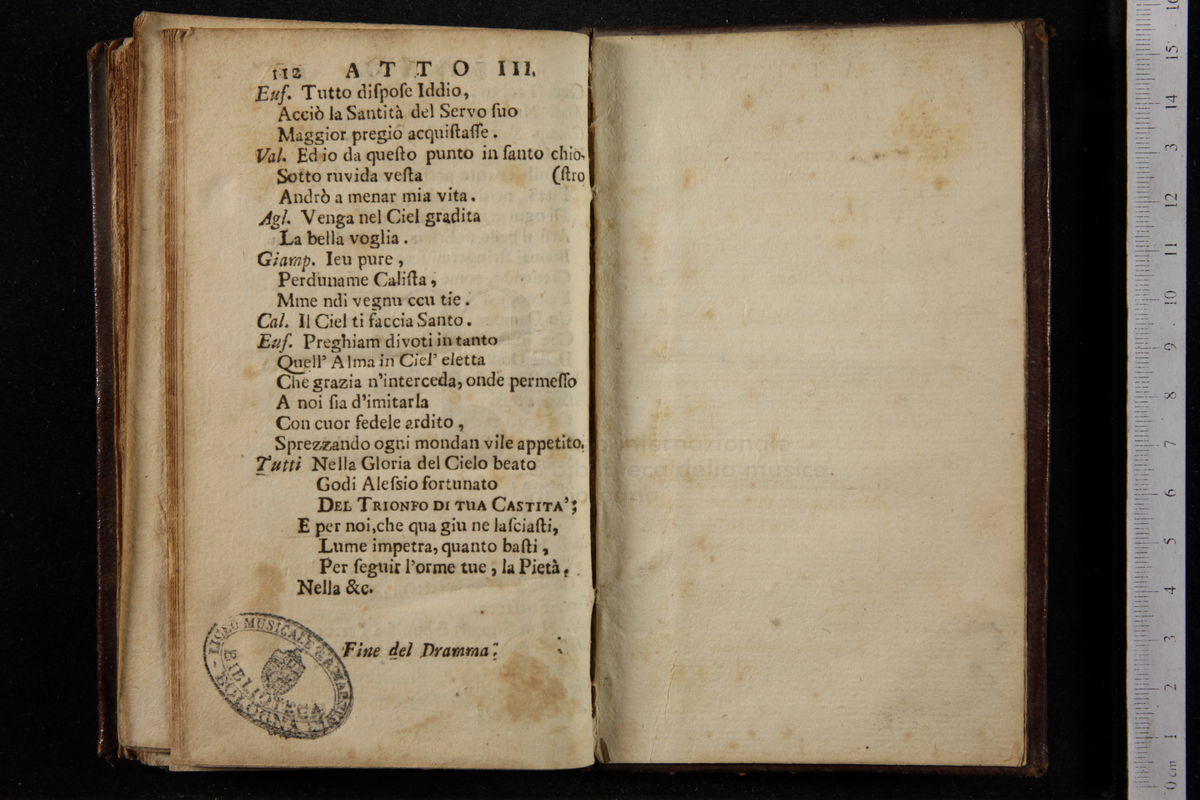 112 ATTO III.
Euf. Tutto diſpoſe Iddio,
Acciò la Santità del Servo ſuo
Maggior pregio acquiſtaſſe.
Val. Ed io da queſto punto in ſanto chio-
Sotto ruvida veſta (ſtro
Andrò a menar mia vita.
Agl. Venga nel Ciel gradita
La bella voglia.
Giamp. Ieu pure,
Perduname Caliſta,
Mme ndi vegnu ccu tie.
Cal. Il Ciel ti faccia Santo.
Euf. Preghiam divoti in tanto
Quell' Alma in Ciel' eletta
Che grazia n'interceda, onde permeſſo
A noi ſia d'imitarla
Con cuor fedele ardito,
Sprezzando ogni mondan vile appetito.
Tutti Nella Gloria del Cielo beato
Godi Aleſsio fortunato
DEL TRIONFO DI TUA CASTITA';
E per noi, che qua giu ne laſciaſti,
Lume impetra, quanto baſti,
Per ſeguir l'orme tue, la Pietà.
Nella &c.
Fine del Dramma.
LICEO MUSICALE
BIBLIOTECA
BOLOGNA
internazionale
biblioteca della musica
0 cm 1 2 3 4 5 6 7 8 9 10 11 12 13 14 15 16